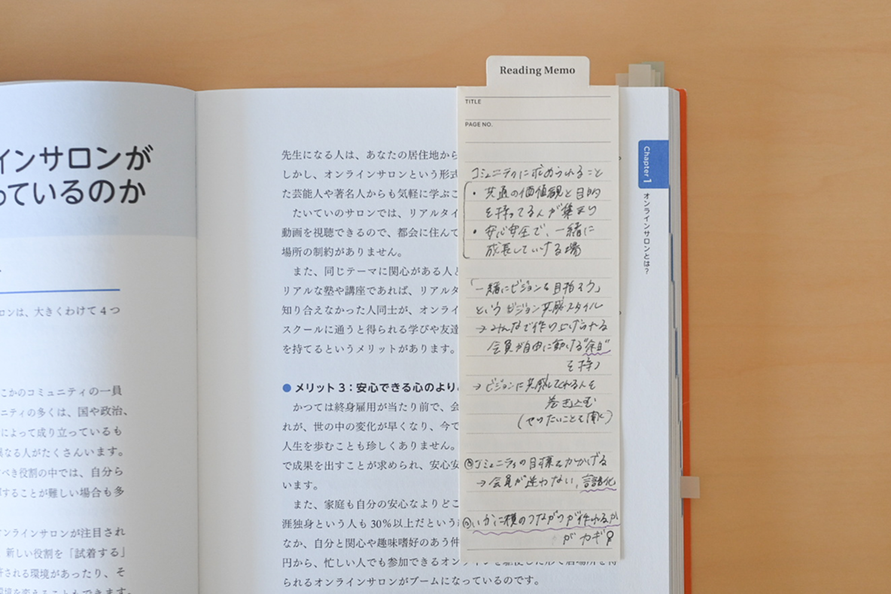 インサロンが
っているのか
ロンは、大きくわけて4つ
こかのコミュニティの一員
ニティの多くは、国や政治、
によって成り立っているも
なる人がたくさんいます。
べき役割の中では、自分ら
することが難しい場合も多
ンラインサロンが注目され
新しい役割を「試着する」
される環境があったり、そ
先生になる人は、あなたの居住地から
しかし、オンラインサロンという形式
た芸能人や著名人からも気軽に学ぶこ
たいていのサロンでは、リアルタイ
動画を視聴できるので、都会に住んて
場所の制約がありません。
また、同じテーマに関心がある人と
リアルな塾や講座であれば、リアルタ
知り合えなかった人同士が、オンライ
スクールに通うと得られる学びや友達
を持てるというメリットがあります。
● メリット3：安心できる心のより
かつては終身雇用が当たり前で、会
れが、世の中の変化が早くなり、今で
人生を歩むことも珍しくありません。
で成果を出すことが求められ、安心安
います。
また、家庭も自分の安心なよりどこ
涯独身という人も30%以上だという
なか、自分と関心や趣味嗜好のあう仲
円から、忙しい人でも参加できるオンライン
られるオンラインサロンがブームになっているのです。
Reading Memo
TITLE
PAGE NO.
コミュニティに求められること
・共通の価値観と目的
を持ってる人が集まり
・安心安全で、一緒に
成長していける場
「一緒にビジョンを目指そう」
というビジョン共感スタイル
→みんなで作り上げられる
会員が自由に動ける"余白"
を持つ
→ビジョンに共感してくれる人を
巻き込む
(やりたいことを聞く)
コミュニティの目標をかかげる
→会員が迷わない、言語化
いかに横のつながりが作れるか
がカギ
Chapter.1
オンラインサロンとは？